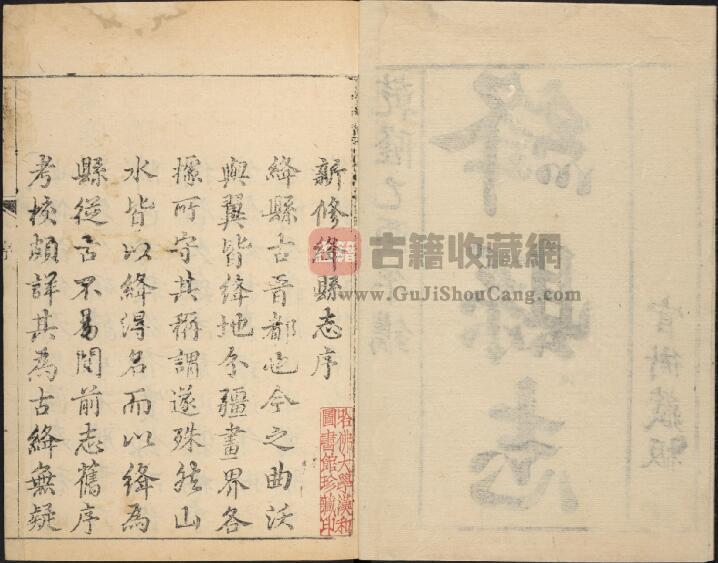 官衙藏板
絳縣志
乾隆
新修絳縣志序
絳縣古晉都也今之曲沃
與翼皆絳地分疆畫界各
據所守其稱謂遂殊然山
水皆以絳得名而以絳為
縣從古不易閱前志舊序
考核頗詳其為古絳無疑
哈佛大學漢和
圖書館珍藏印
古籍
古籍收藏網
www.GuJiShouCang.com
序